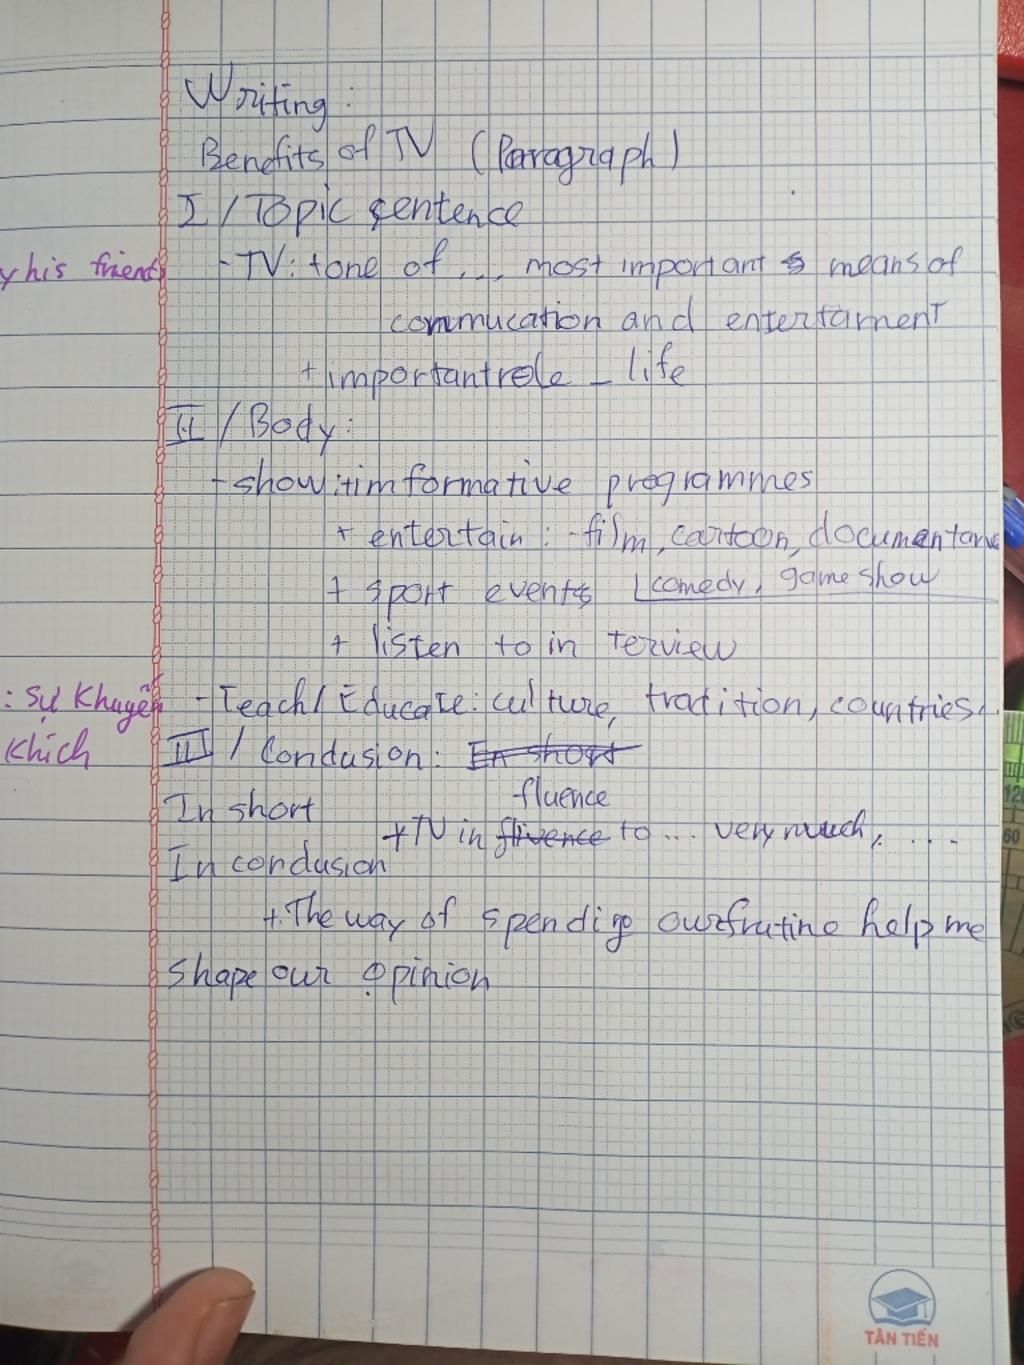 Writing:
Benefits of TV (Paragraph)
I / Topic sentence
y his friend
- TV: + one of ... most important means of
commucation and entertament
+ important role _ life
II / Body:
- show: + imformative programmes
+ entertain: - film, cartoon, documentarie
+ sport events comedy, game show
+ listen to in terview
: sự khuyến
khích
- Teach / Educate: culture, tradition, countries.
III / Condusion: In short
In short
fluence
+ TV in flivence to ... very much, ....
In condusion
+ The way of spendig our help me
shape our opinion
TÂN TIẾN